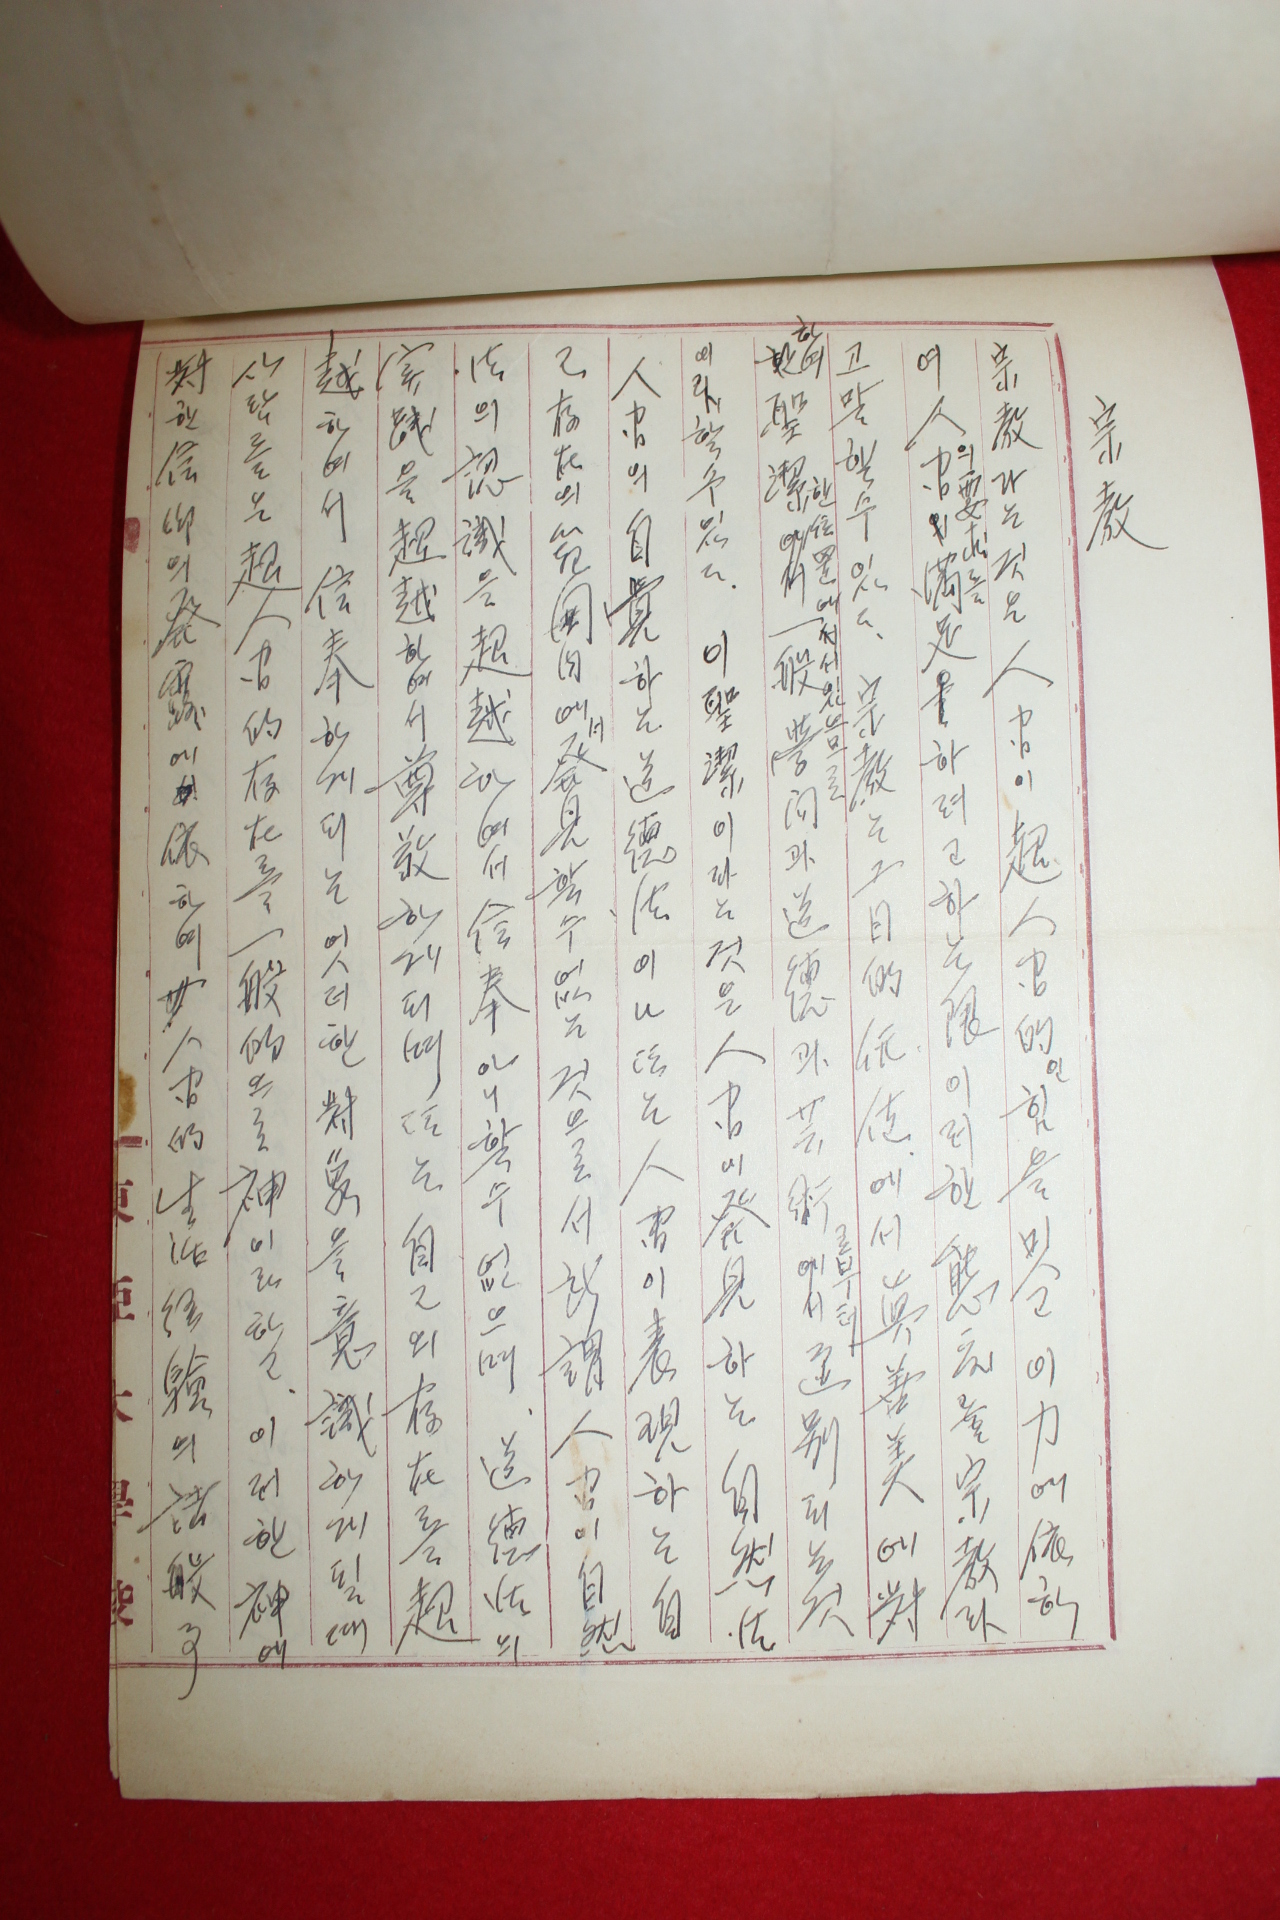 宗教
宗教라는것은 人间이 超人间的인 힘을 믿고 이力에依하
여 人间의要求를滿足을하려고하는限 이러한 態度를 宗教라
고말할수있다. 宗教는그目的 에서 眞善美에對
하여聖潔한位置에서서있음으로一般学问과 道德과 芸術로부터区别되는것
이라할수있다. 이聖潔이라는것은 人间이發見하는 自然法
人间의自覺하는 道德法이나 또는 人间이表現하는自
己存在의范围内에서發見할수없는것으로서 所謂 人间이自然
法의認識을超越하여서 信奉아니할수없으며. 道德法의
实践을超越하여서 尊敬하게되며 또는 自己의存在를超
越하여서 信奉하게되는 엇더한 對象을意識하게될때
사람들은超人间的存在를一般的으로神이라함. 이러한神에
對한信仰의發露에依하여人间的生活經驗의 法
東亞大學校